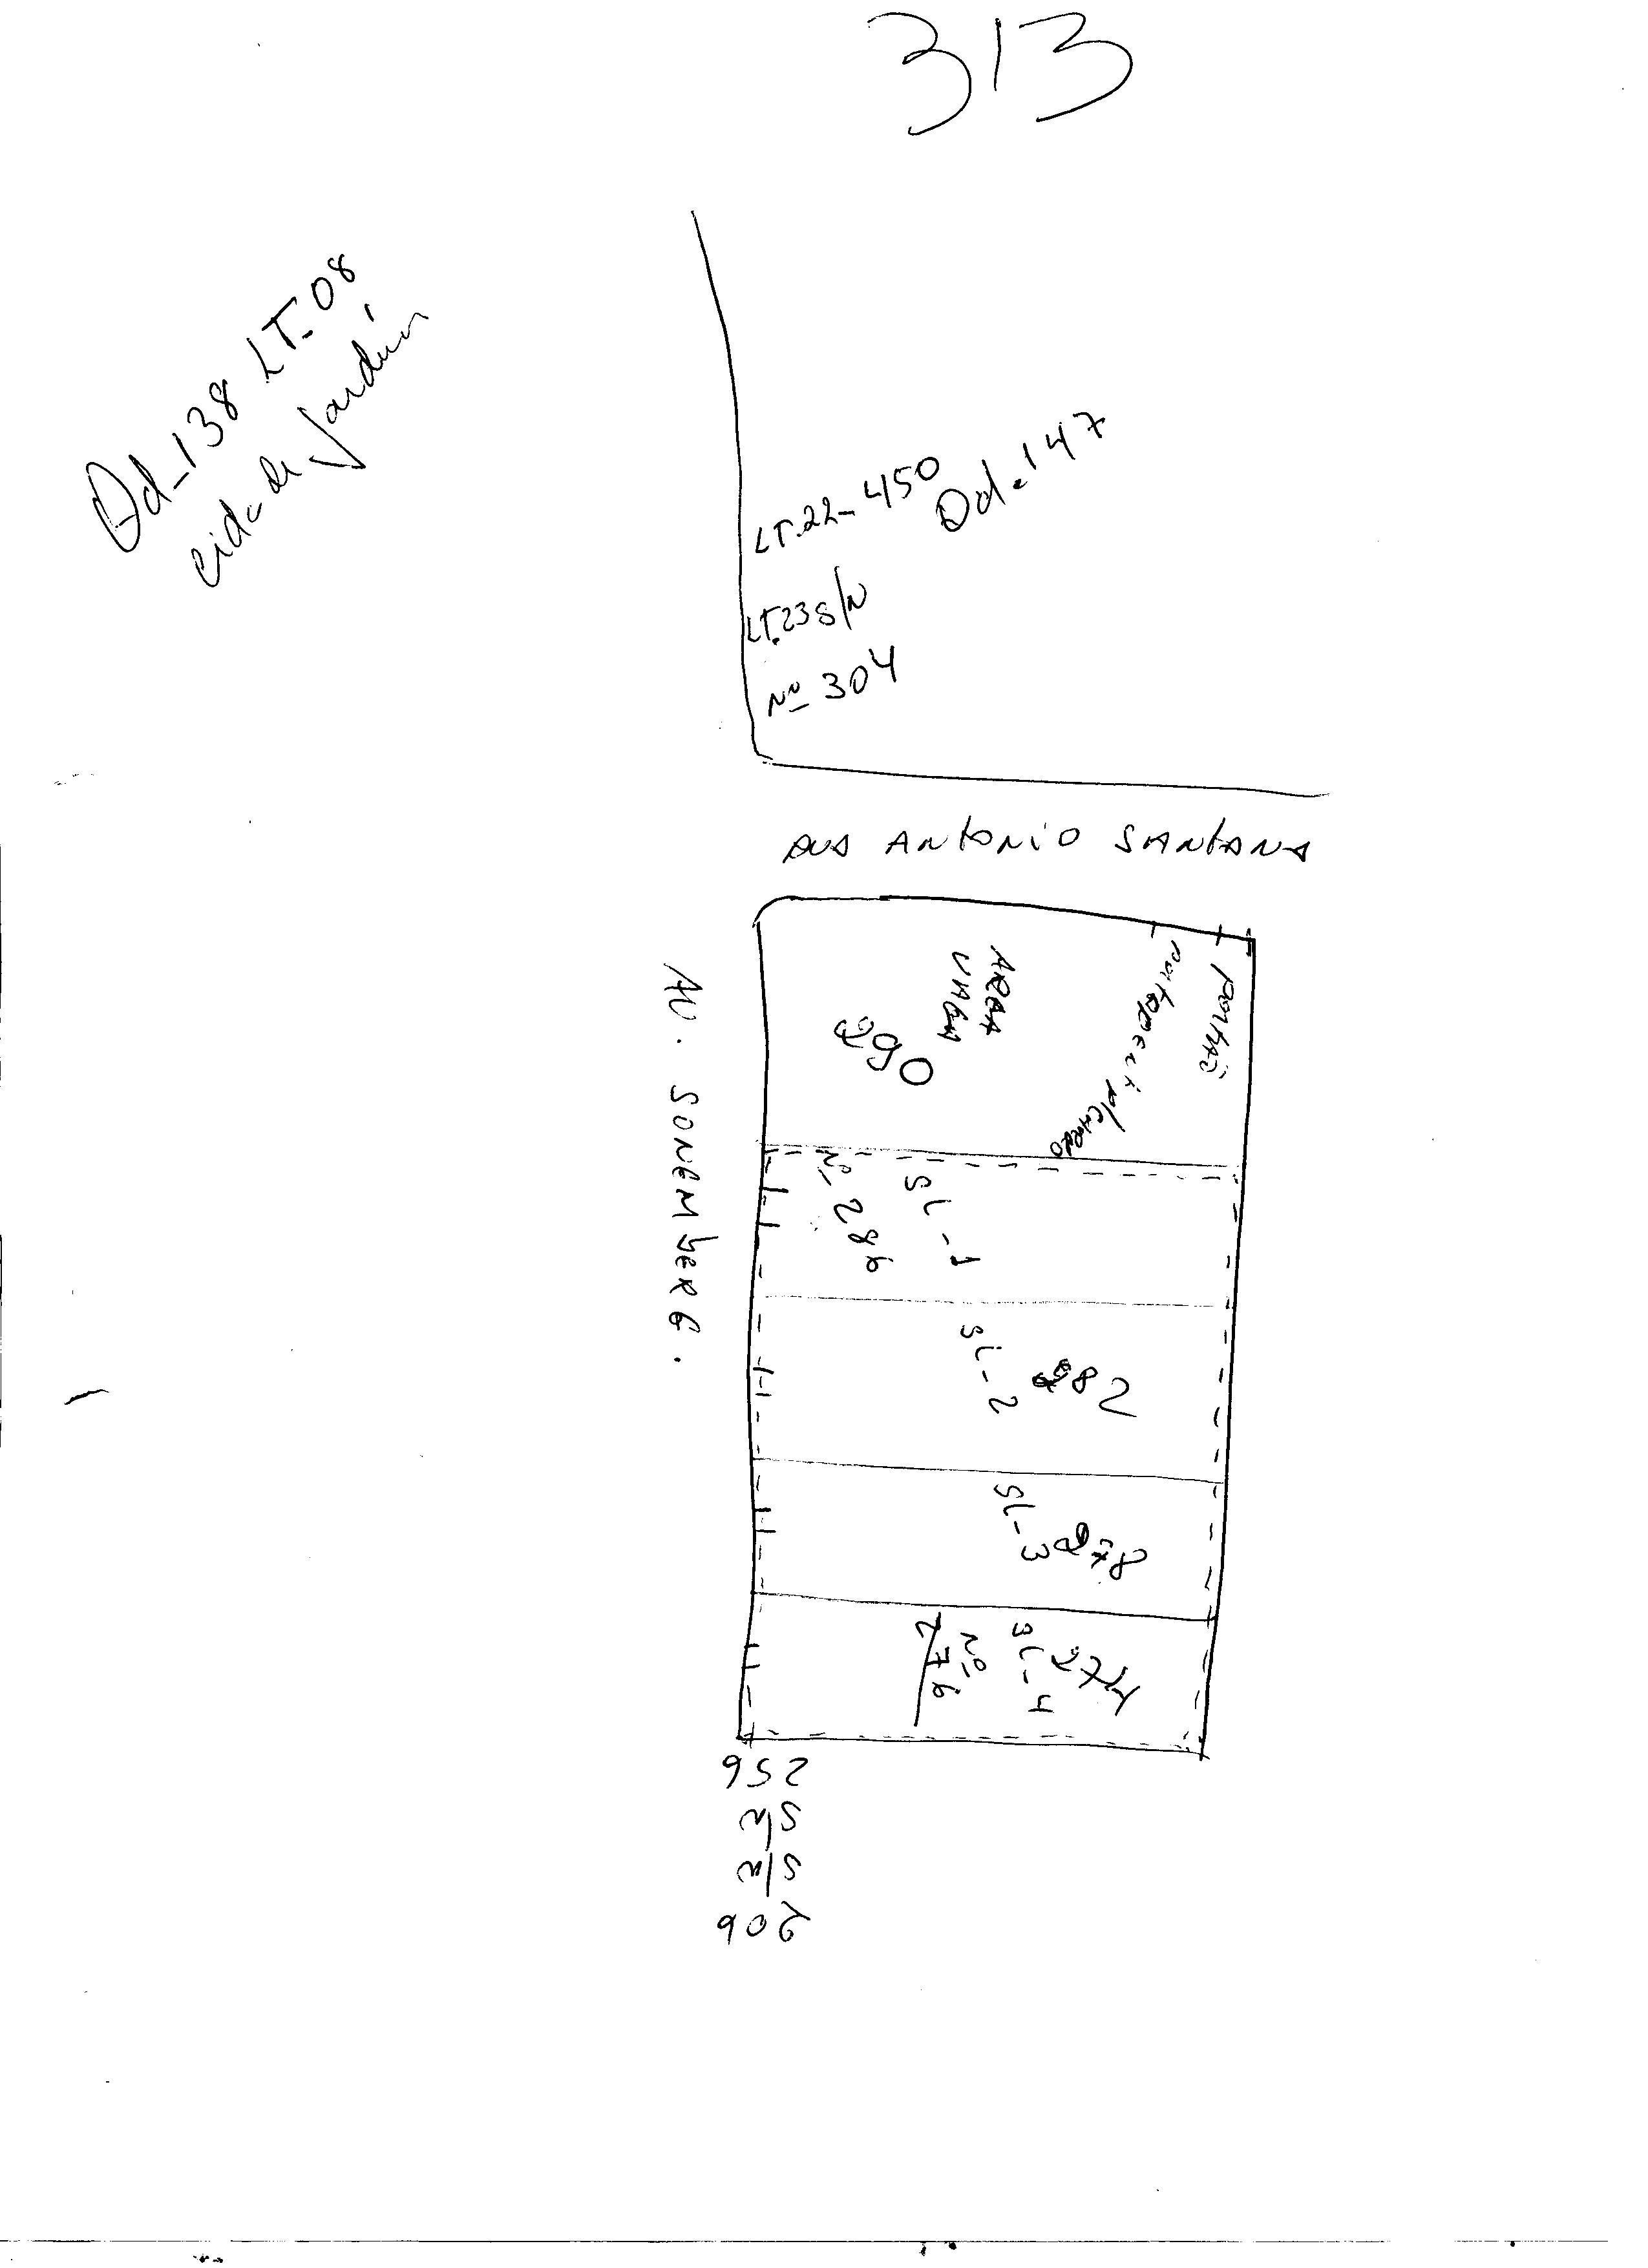 313
Qd-138 LT-08
cidade Jardim
LT.22-450
Qd.147
LT.23 S/N
Nº 304
RUA ANTONIO SANTANA
AV. SONEMBERG.
AREA
VAGA
290
portão
Nº 286
SL-1
SL-2
282
SL-3
278
SL-4
274
Nº
276
256
S/N
S/N
206